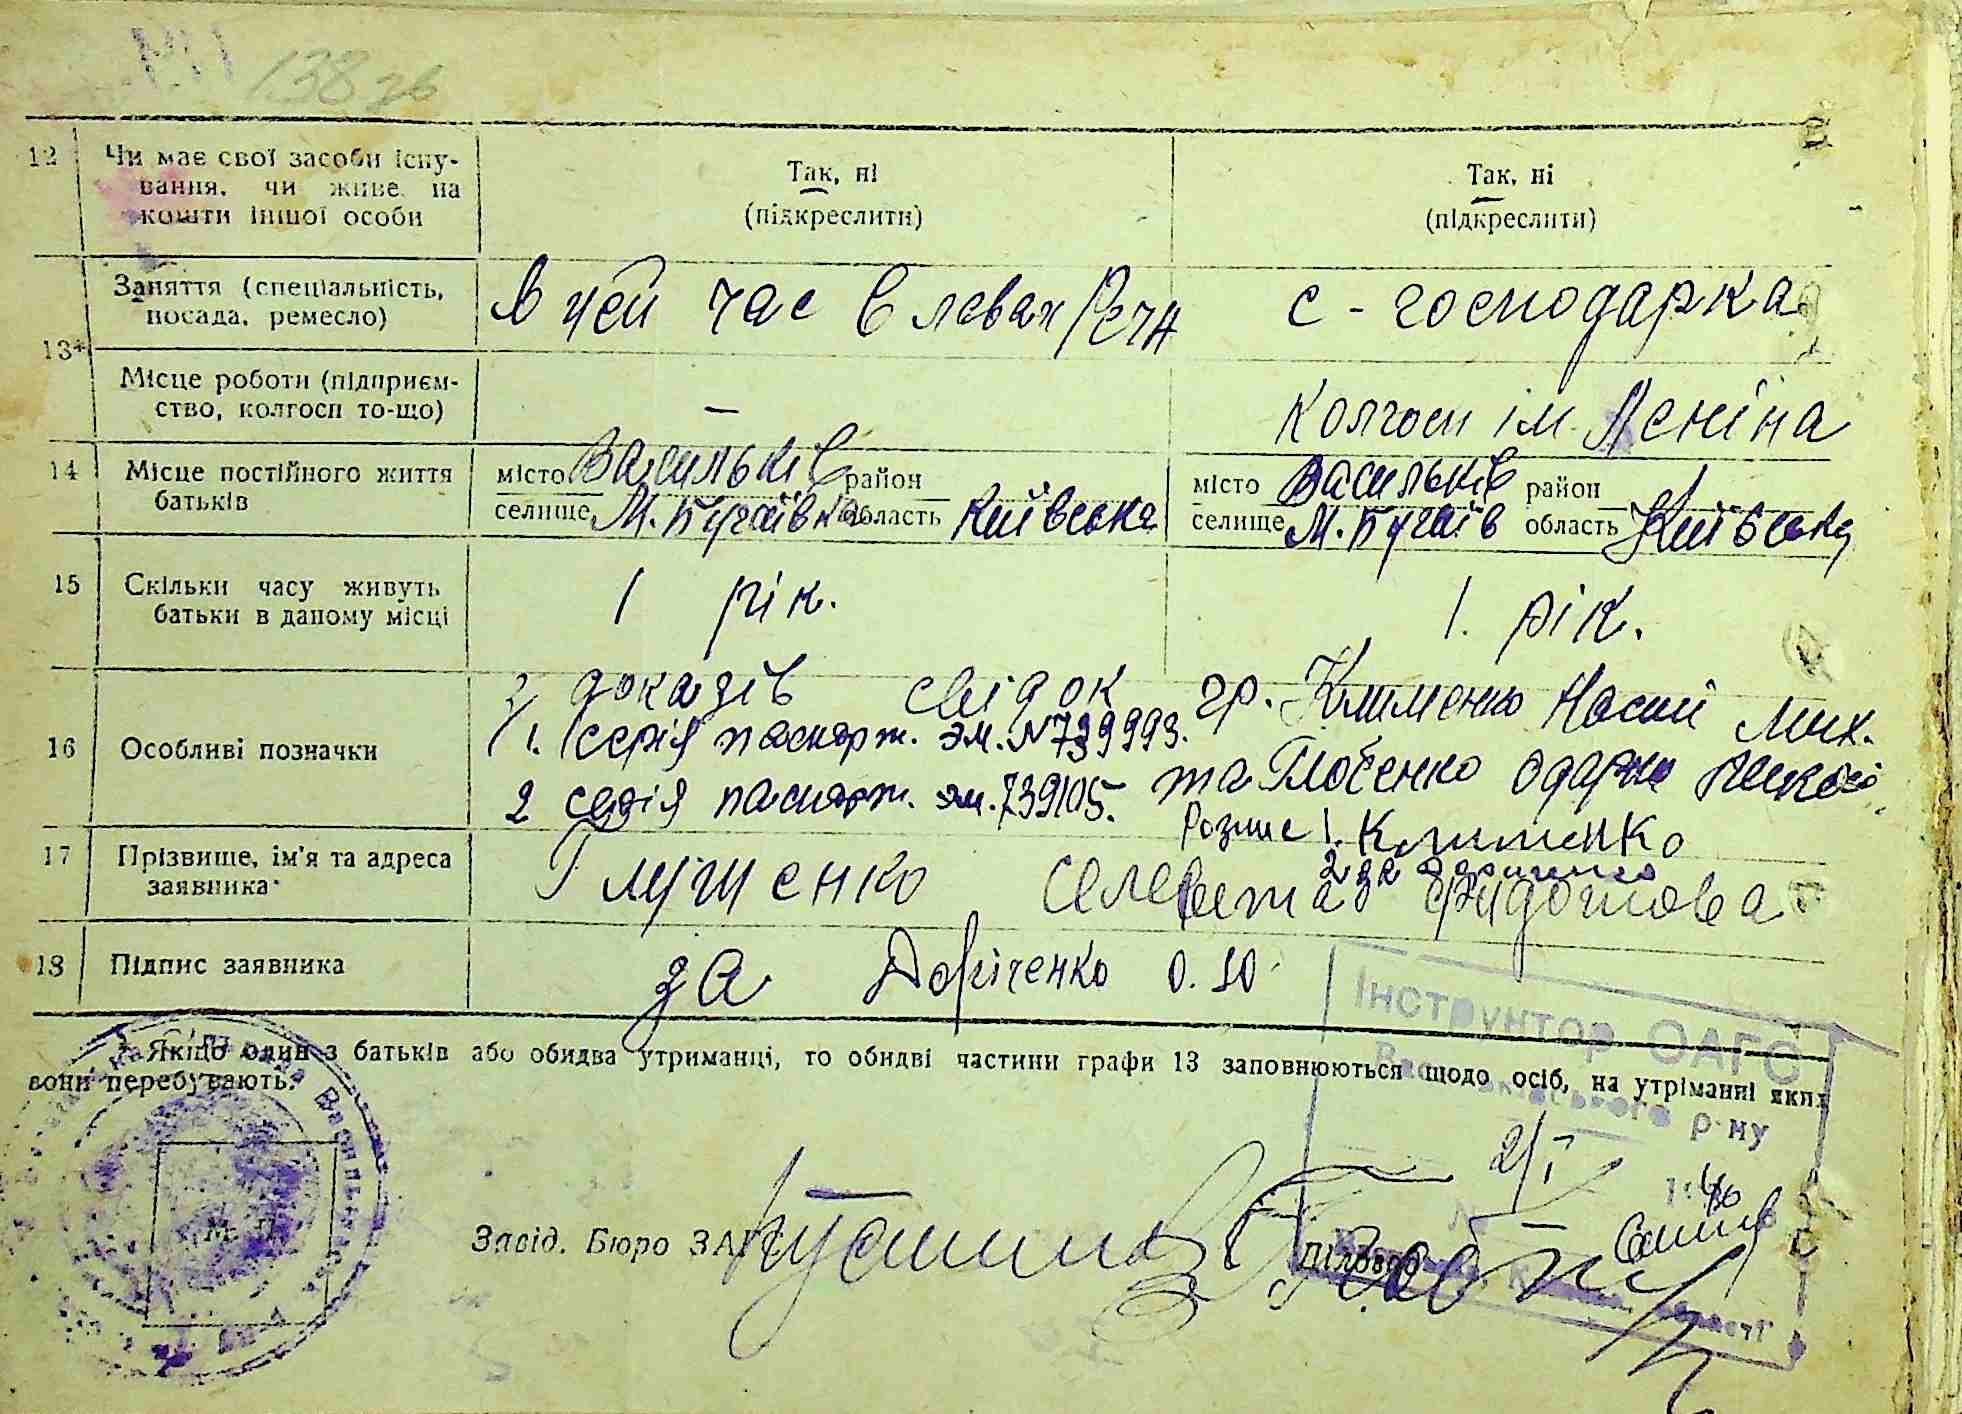 138 зв
12 Чи має свої засоби існу- Так, ні Так, ні
вання, чи живе на (підкреслити) (підкреслити)
кошти іншої особи
13* Заняття (спеціальність, В цей час в левах РСЧА с-господарка
посада, ремесло)
Місце роботи (підприєм- — Колгосп ім. Леніна
ство, колгосп то-що)
14 Місце постійного життя місто Васильків район місто Васильків район
батьків селище М. Бугаївка область Київська селище М. Бугаїв область Київська
15 Скільки часу живуть 1 рік. 1. рік.
батьки в даному місці
16 Особливі позначки З доказів свідок гр. Клименко Насті Мих.
1. серія паспорт. эм. № 739993. та Глобенко Одарки
2 серія паспорт. эм. 739105. Розпис 1. Клименко
17 Прізвище, ім'я та адреса Глущенко Федотова
заявника
18 Підпис заявника за О. Ю.
* Якщо один з батьків або обидва утриманці, то обидві частини графи 13 заповнюються щодо осіб, на утріманні яких
вони перебувають.
Інструктор ОАГС
Васильківського р-ну
2/I
М. П.
Завід. Бюро ЗАГС
Діловод